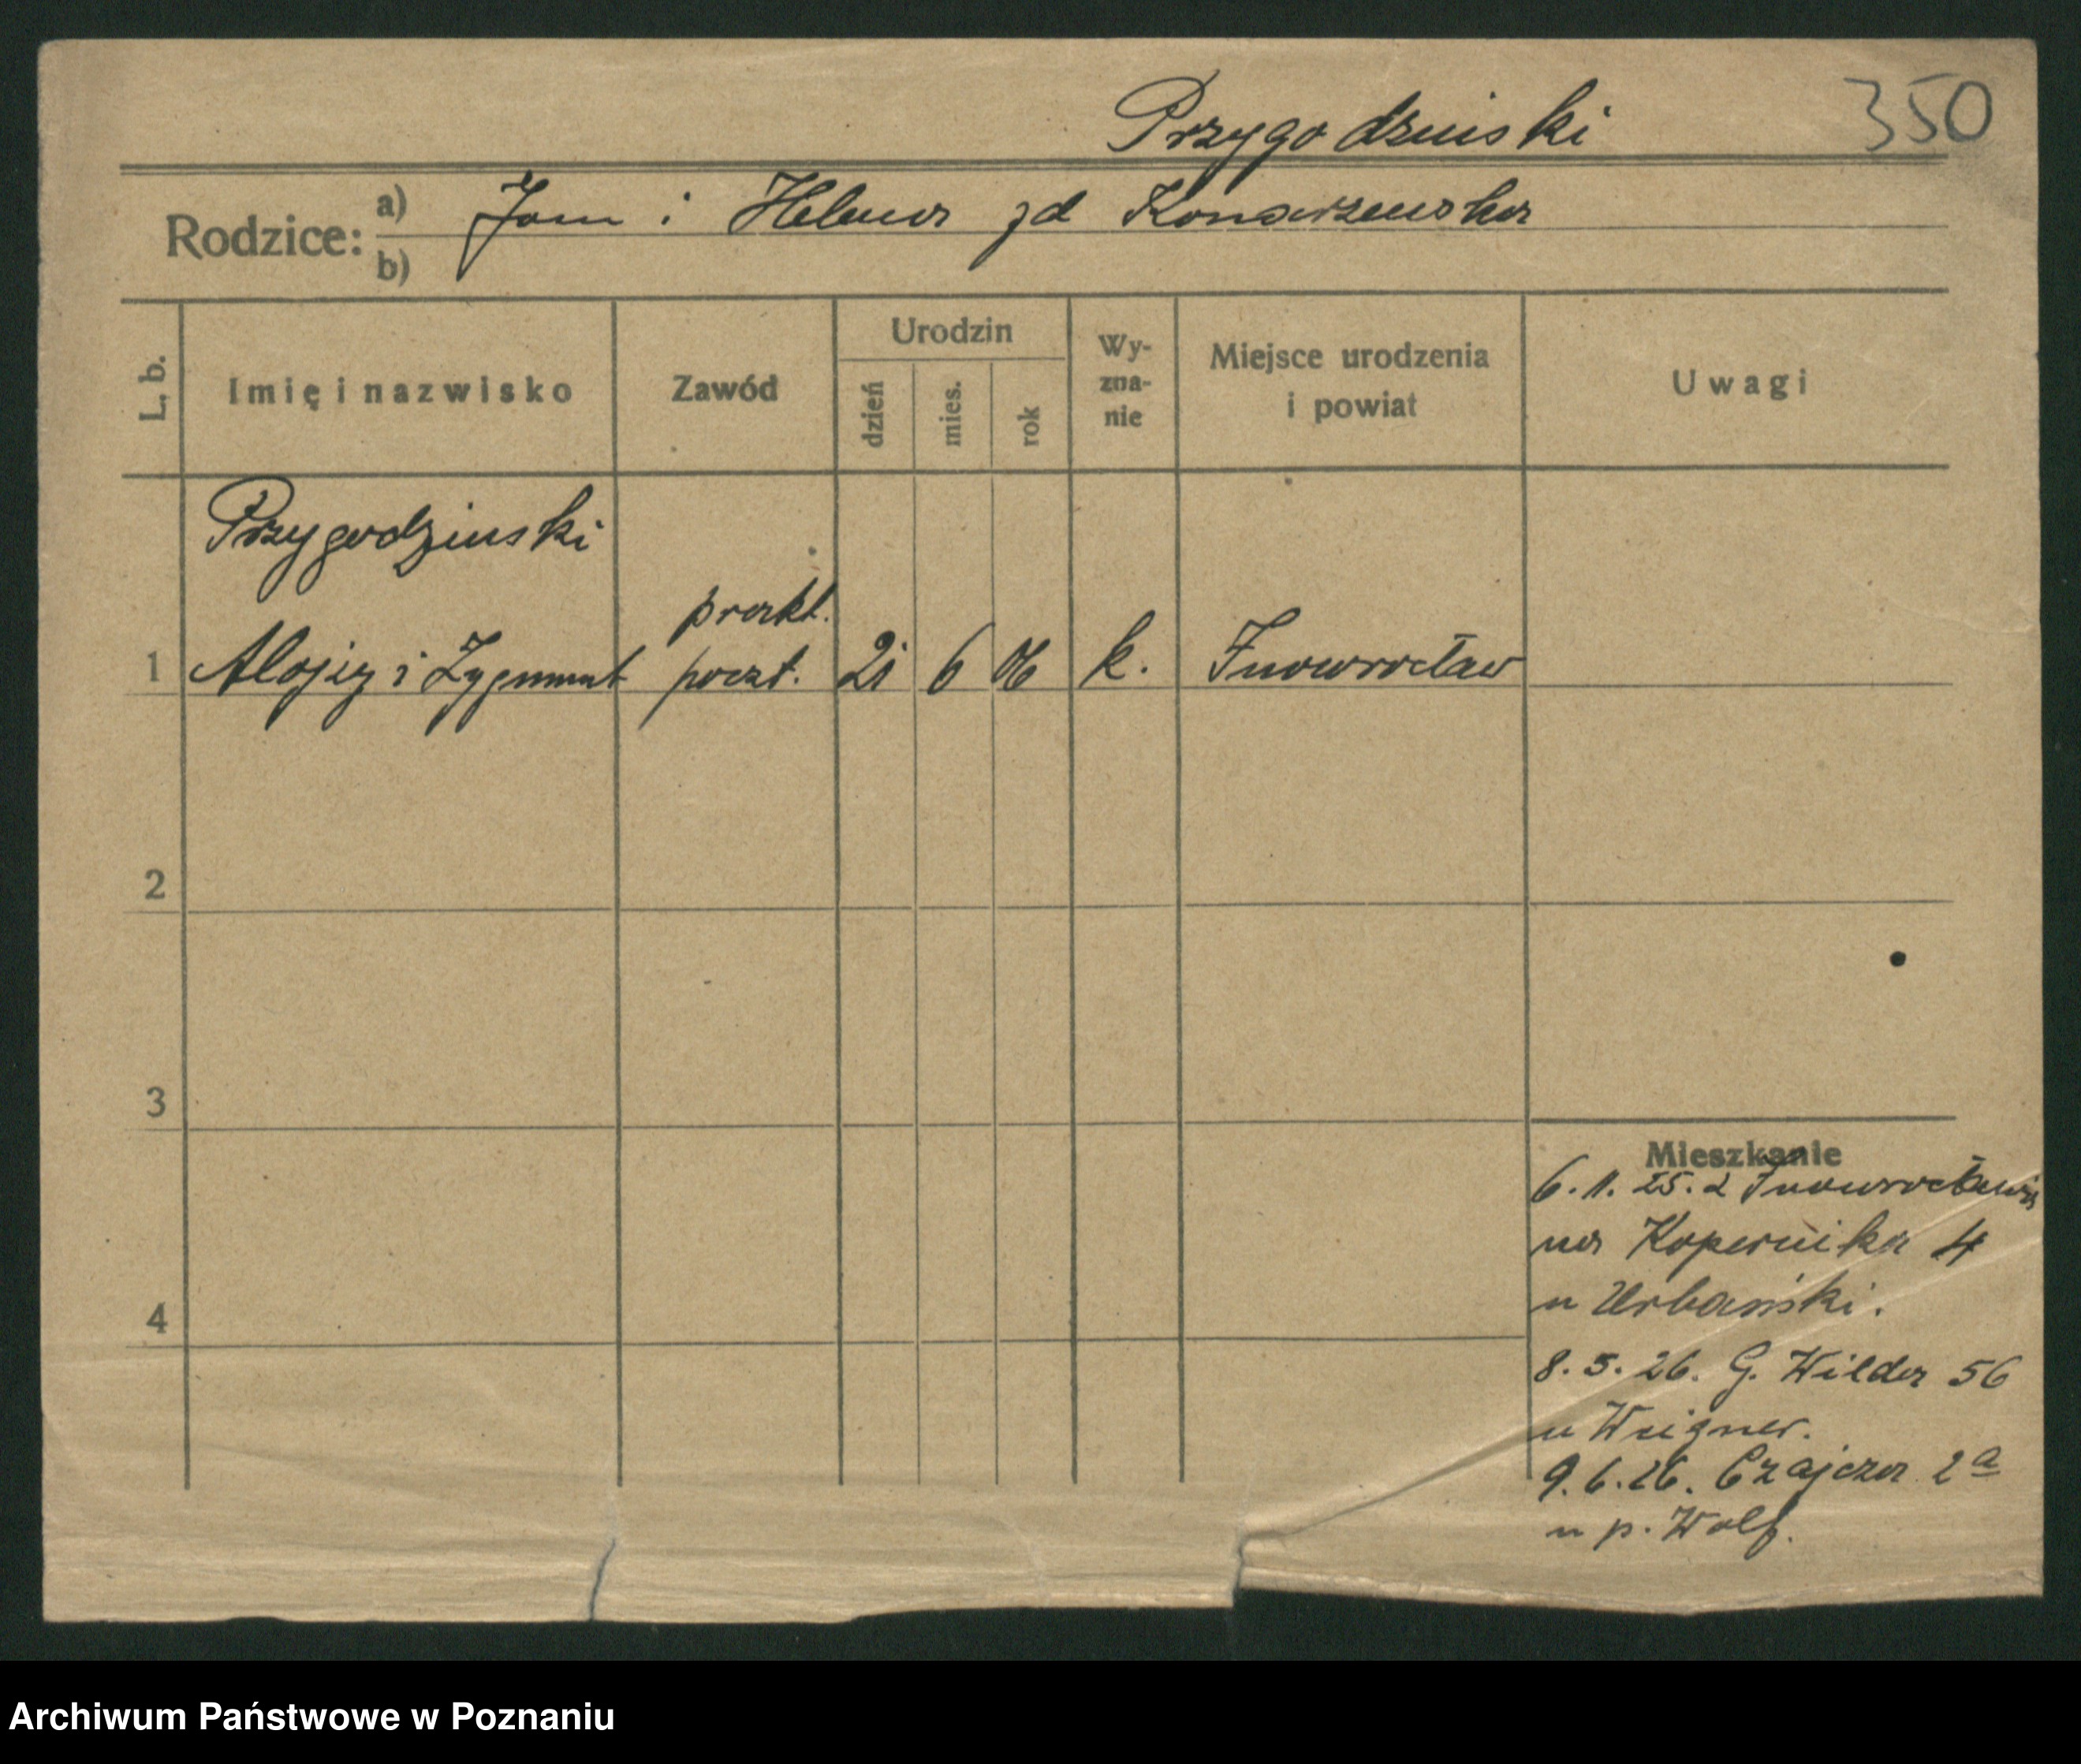 350
Przygodzinski
Rodzice: a) Jan i Helena zd Konarzewska
b)
L. b.
Imię i nazwisko
Zawód
Urodzin
dzień
mies.
rok
Wy-
zna-
nie
Miejsce urodzenia
i powiat
Uwagi
Przygodzinski
prakt.
1 Alojzy i Zygmunt poczt. 21 6 06 k. Inowrocław
2
3
4
Mieszkanie
6. 11. 25. z Inowrocławia
na Kopernika 4
u Urbański.
8. 5. 26. G. Wilda 56
u Weigner.
9. 6. 26. Czajcza 2a
u p. Wolf.
Archiwum Państwowe w Poznaniu